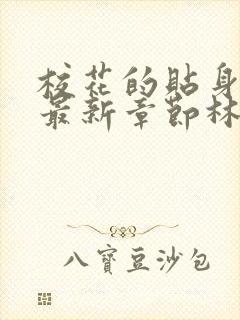 校花的貼身
最新章節林
八寶豆沙包